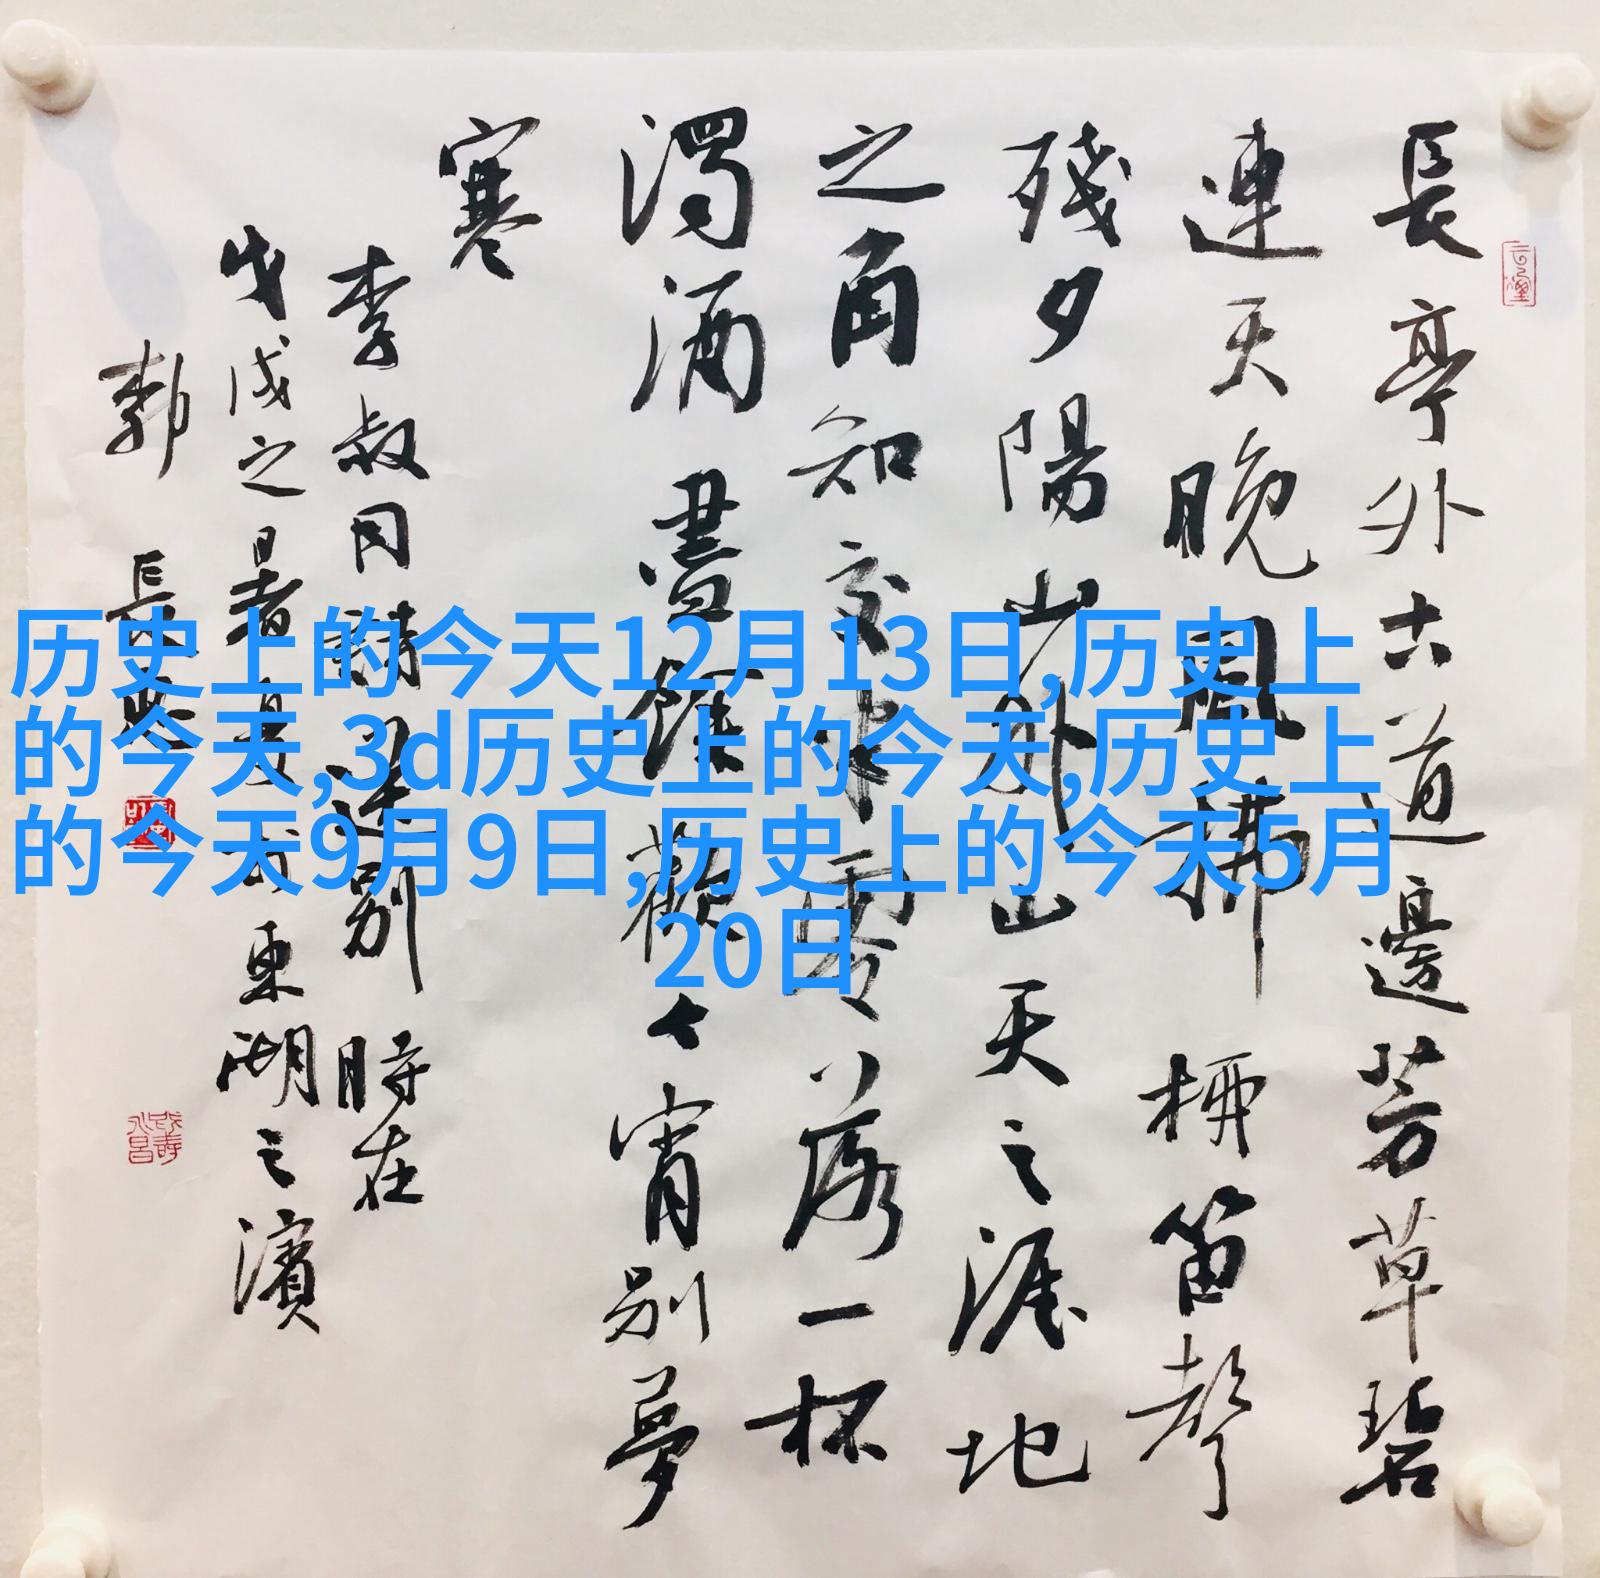 長亭外古道邊芳草碧
連天晚風拂柳笛聲
殘夕陽山外山天之涯地
之角知交半零落一杯
濁酒盡餘歡今宵別夢
寒
李叔同詩送別 時在
戊戌之暑東湖之濱
郭長
历史上的今天12月13日,历史上
的今天,3d历史上的今天,历史上
的今天9月9日,历史上的今天5月
20日